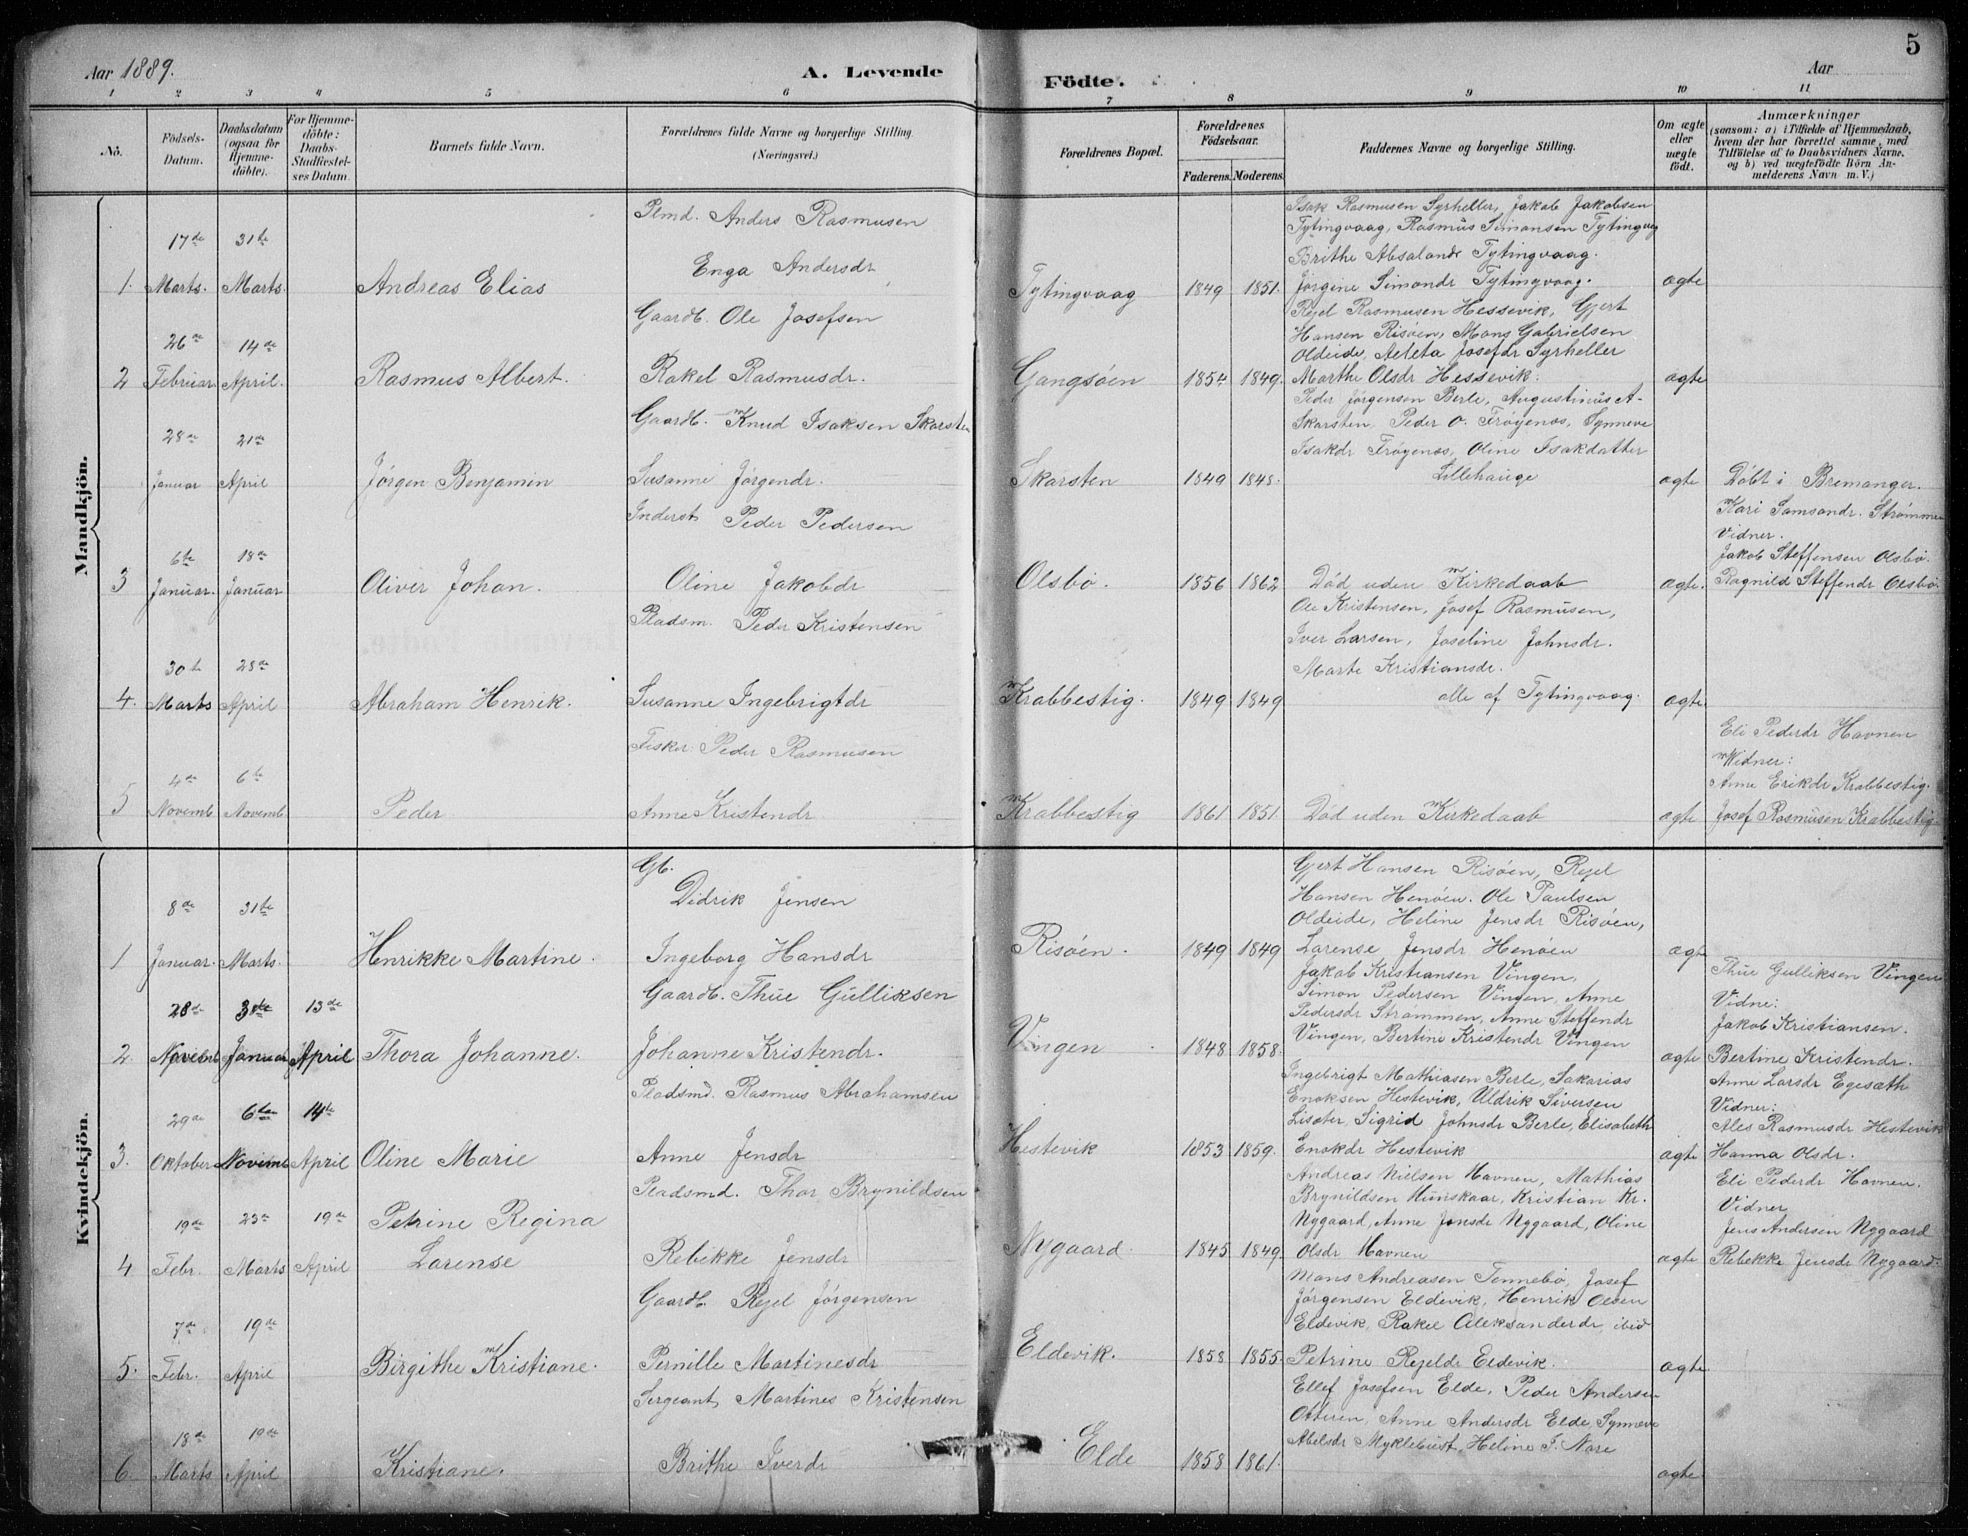 5
Aar 1889. A. Levende Födte. Aar
1 2 3 4 5 6 7 8 9 10 11
Nô. Födsels-Datum. Daabsdatum (ogsaa for Hjemmedöbte). For Hjemmedöbte: Daabs-Stadfæstelses Datum. Barnets fulde Navn. Forældrenes fulde Navne og borgerlige Stilling. (Næringsvei.) Forældrenes Bopæl. Forældrenes Födselsaar. Faderens. Moderens. Faddernes Navne og borgerlige Stilling. Om ægte eller uægte födt. Anmærkninger (saasom: a) i Tilfælde af Hjemmedaab, hvem der har forrettet samme, med Tilföielse af to Daabsvidners Navne, og b) ved uægtefödte Börn Anmelderens Navn m. V.)
Mandkjön.
Plmd. Anders Rasmusen
Isak Rasmusen Syrheller, Jakob Jakobsen
Tytingvaag, Rasmus Simonsen Tytingvag
17de 31te Enga Andersdr
Brithe Absalondr Tytingvaag.
1. Marts. Marts. Andreas Elias Tytingvaag 1849 1851. Jørgine Simondr Tytingvaag. ægte
Gaardb. Ole Josefsen
Rejel Rasmusen Hessevik, Gjert
Hansen Risöen, Mons Gabrielsen
26de 14de
Oldeide, Aeleta Josefdr Syrheller
2 Februar April. Rasmus Albert. Rakel Rasmusdr. Gangsöen 1854 1849. Marthe Olsdr Hessevik. ægte
Gaardb. Knud Isaksen Skarsten
Peder Jörgensen Berle, Augustinus A-
28de 21de
Skarsten, Peder O. Fröyenes, Synneve
Isakdr Fröyenes, Oline Isakdatter
Januar April Jörgen Benjamin Susanne Jörgendr. Skarsten 1849 1848. Lillehauge ægte Döbt i Bremanger.
Inderst Peder Pedersen
Kari Samsondr. Strömmen
Vidner.
6te 18de
Jakob Steffensen Olsbö.
3 Januar. Januar Oliver Johan. Oline Jakobdr Olsbö. 1856 1862 Död uden Kirkedaab ægte. Ragnild Steffendr Olsbö.
Pladsm. Peder Kristensen
Ole Kristensen, Josef Rasmusen,
Iver Larsen, Joseline Johnsdr.
30te 28de
Marte Kristiansdr.
4. Marts April Abraham Henrik. Susanne Ingebrigtdr Krabbestig. 1849 1849 alle af Tytingvaag. ægte
Fisker: Peder Rasmusen
Eli Pederdr Havnen
Widner:
4de 6te
Anne Erikdr Krabbestig.
5 Novemb. Novemb Peder Anne Kristendr Krabbestig 1861 1851. Död uden Kirkedaab ægte Josef Rasmusen Krabbestig.
Kvindekjön.
Gb.
Didrik Jensen
Gjert Hansen Risöen, Rejel
Hansen Henöen. Ole Paulsen
8de 31te
Oldeide, Heline Jensdr Risöen,
1 Januar. Marts. Henrikke Martine. Ingeborg Hansdr Risöen. 1849 1849 Larense Jensdr Henöen ægte
Gaardb. Thue Gulliksen
Jakob Kristiansen Vingen,
Thue Gulliksen Vingen
Simon Pedersen Vingen, Anne
Vidne:
28de 30te 13de
Pedersdr Strömmen, Anne Steffendr
Jakob Kristiansen.
Vingen, Bertine Kristendr Vingen
2. Novemb Januar April Thora Johanne. Johanne Kristendr. Vingen 1848 1858. ægte Bertine Kristendr.
Pladsmd. Rasmus Abrahamsen
Ingebrigt Mathiasen Berle, Sakarias
Anne Larsdr Egesæth
Enoksen Hestevik, Uldrik Siversen
Vidner:
29de 6te 14te
Liseter, Sigrid Johnsdr Berle, Elisabeth
Ales Rasmusdr Hestevik
3. Oktober Novemb April Oline Marie Anne Jensdr Hestevik 1853 1859. Enokdr Hestevik ægte Hanna Olsdr.
Pladsmd. Thor Brynildsen
Andreas Nielsen Havnen, Mathias
Eli Pederdr Havnen.
Brynildsen Hunskaar, Kristian Kr.
Vidner
19de 23de 19de Petrine Regina
Nygaard, Anne Jensdr Nygaard, Oline
Jens Andersen Nygaard
4 Febr. Marts April Larense Rebekke Jensdr Nygaard. 1845 1849. Olsdr Havnen ægte Rebekke Jensdr Nygaard.
Gaardb. Rejel Jörgensen
Mons Andreasen Tennebö, Josef
Jörgensen Eldevik, Henrik Olsen
7de 19de
Eldevik, Rakel Aleksanderdr, ibid
5. Febr. April Birgithe Kristiane. Pernille Martinesdr Eldevik. 1858 1855. Petrine Rejeldr Eldevik. ægte
Sergeant Martines Kristensen
Ellef Josefsen Elde, Peder Andersen
Otteren, Anne Andersdr Elde, Synneve
18de 19de
Abelsdr Myklebust, Heline J. Nore
6. Marts April Kristiane. Brithe Iverdr Elde 1858 1861. ægte